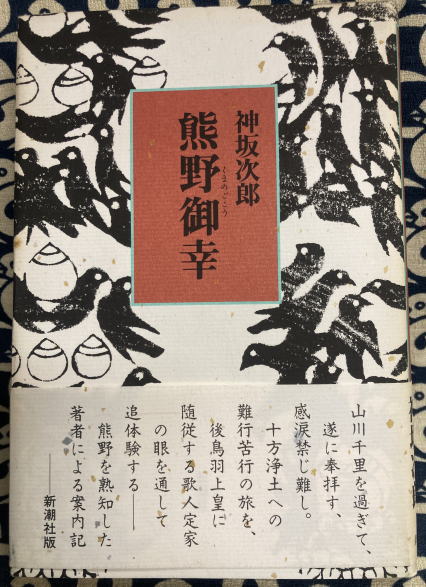 神坂次郎
熊野御幸
くまのごこう
山川千里を過ぎて、
遂に奉拝す、
感涙禁じ難し。
十方浄土への
難行苦行の旅を、
後鳥羽上皇に
随従する歌人定家
の眼を通して
追体験する——
熊野を熟知した
著者による案内記
——新潮社版